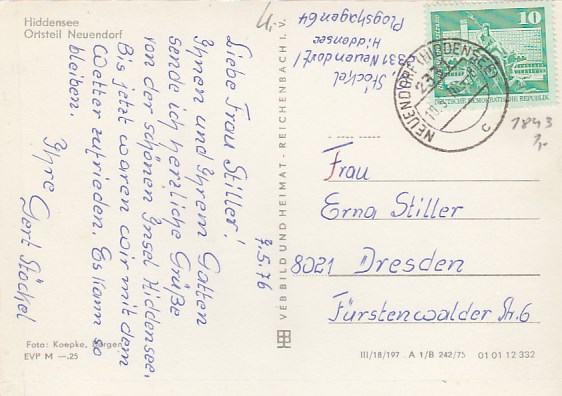 Hiddensee
Ortsteil Neuendorf
4,-
7.5.76
Liebe Frau Stiller!
Ihnen und Ihrem Gatten
sende ich herzliche Grüße
von der schönen Insel Hiddensee.
Bis jetzt waren wir mit dem
Wetter zufrieden. Es kann so
bleiben.
Ihre
Foto: Koepke,
EVP M —.25
VEB BILD UND HEIMAT · REICHENBACH I. V.
Stöckel
2331 Neuendorf/
Hiddensee
Plogshagen 64
10
DEUTSCHE DEMOKRATISCHE REPUBLIK
NEUENDORF (HIDDENSEE)
c
1843
1,-
Frau
Erna Stiller
8021 Dresden
Fürstenwalder Str. 6
III/18/197 A 1/B 242/75 01 01 12 332